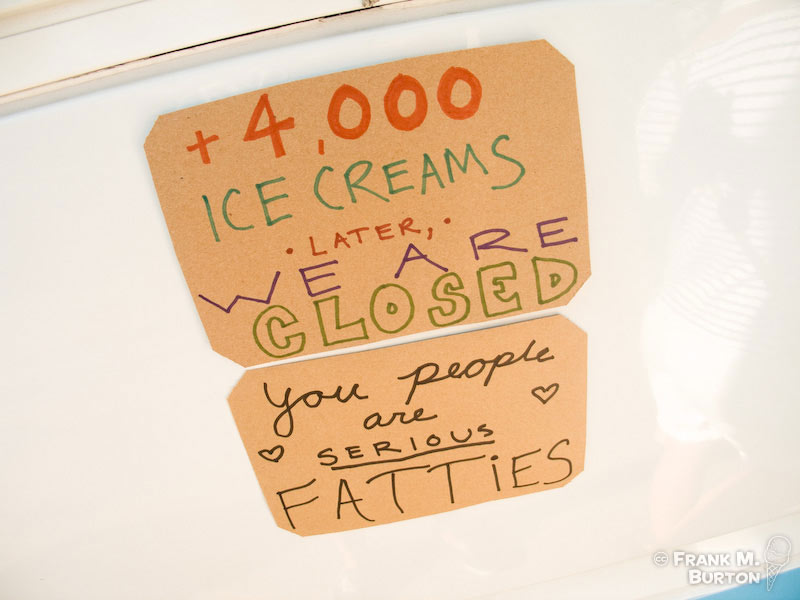 +4,000
ICE CREAMS
• LATER, •
WE ARE
CLOSED
You people
are
SERIOUS
FATTiES
cc FRANK M.
BURTON